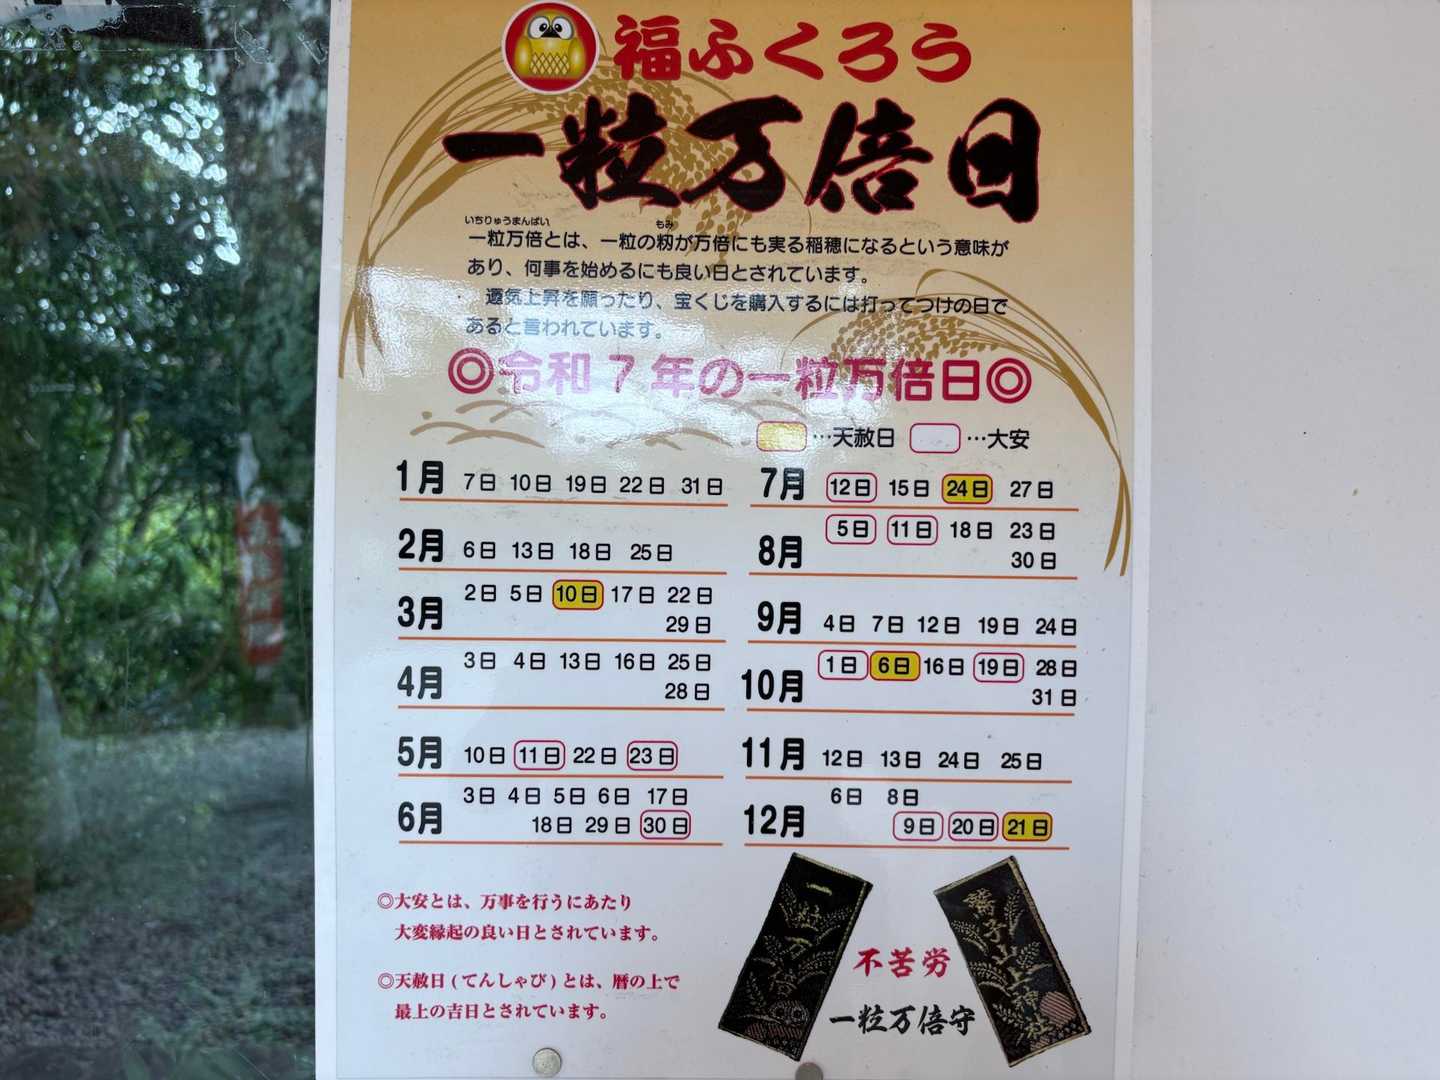 福ふくろう
一粒万倍日
いちりゅうまんばい もみ
一粒万倍とは、一粒の籾が万倍にも実る稲穂になるという意味が
あり、何事を始めるにも良い日とされています。
運気上昇を願ったり、宝くじを購入するには打ってつけの日で
あると言われています。
◎令和7年の一粒万倍日◎
…天赦日 …大安
1月 7日 10日 19日 22日 31日
2月 6日 13日 18日 25日
3月 2日 5日 10日 17日 22日
29日
4月 3日 4日 13日 16日 25日
28日
5月 10日 11日 22日 23日
6月 3日 4日 5日 6日 17日
18日 29日 30日
7月 12日 15日 24日 27日
8月 5日 11日 18日 23日
30日
9月 4日 7日 12日 19日 24日
10月 1日 6日 16日 19日 28日
31日
11月 12日 13日 24日 25日
12月 6日 8日
9日 20日 21日
◎大安とは、万事を行うにあたり
大変縁起の良い日とされています。
◎天赦日(てんしゃび)とは、暦の上で
最上の吉日とされています。
一粒万倍
鷲子山上神社
不苦労
一粒万倍守